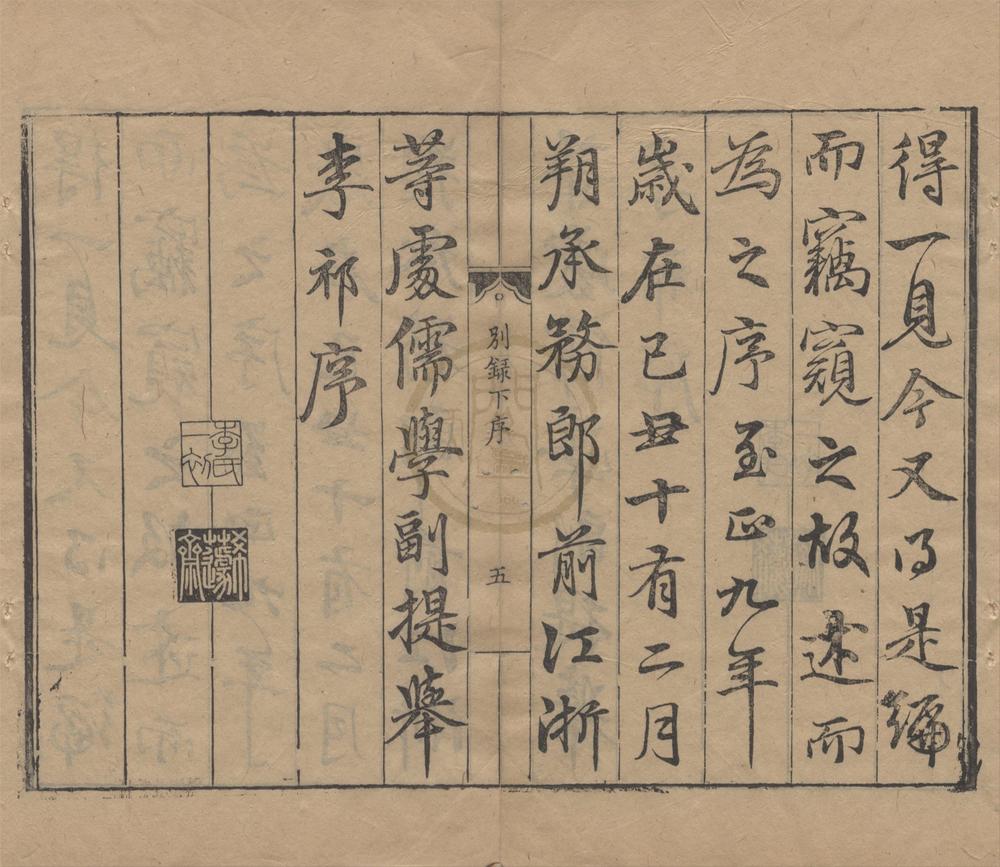 得一見今又得是編
而竊窺之故述而
為之序至正九年
歲在己丑十有二月
朔承務郎前江浙
等處儒學副提舉
李祁序
別録下序
五